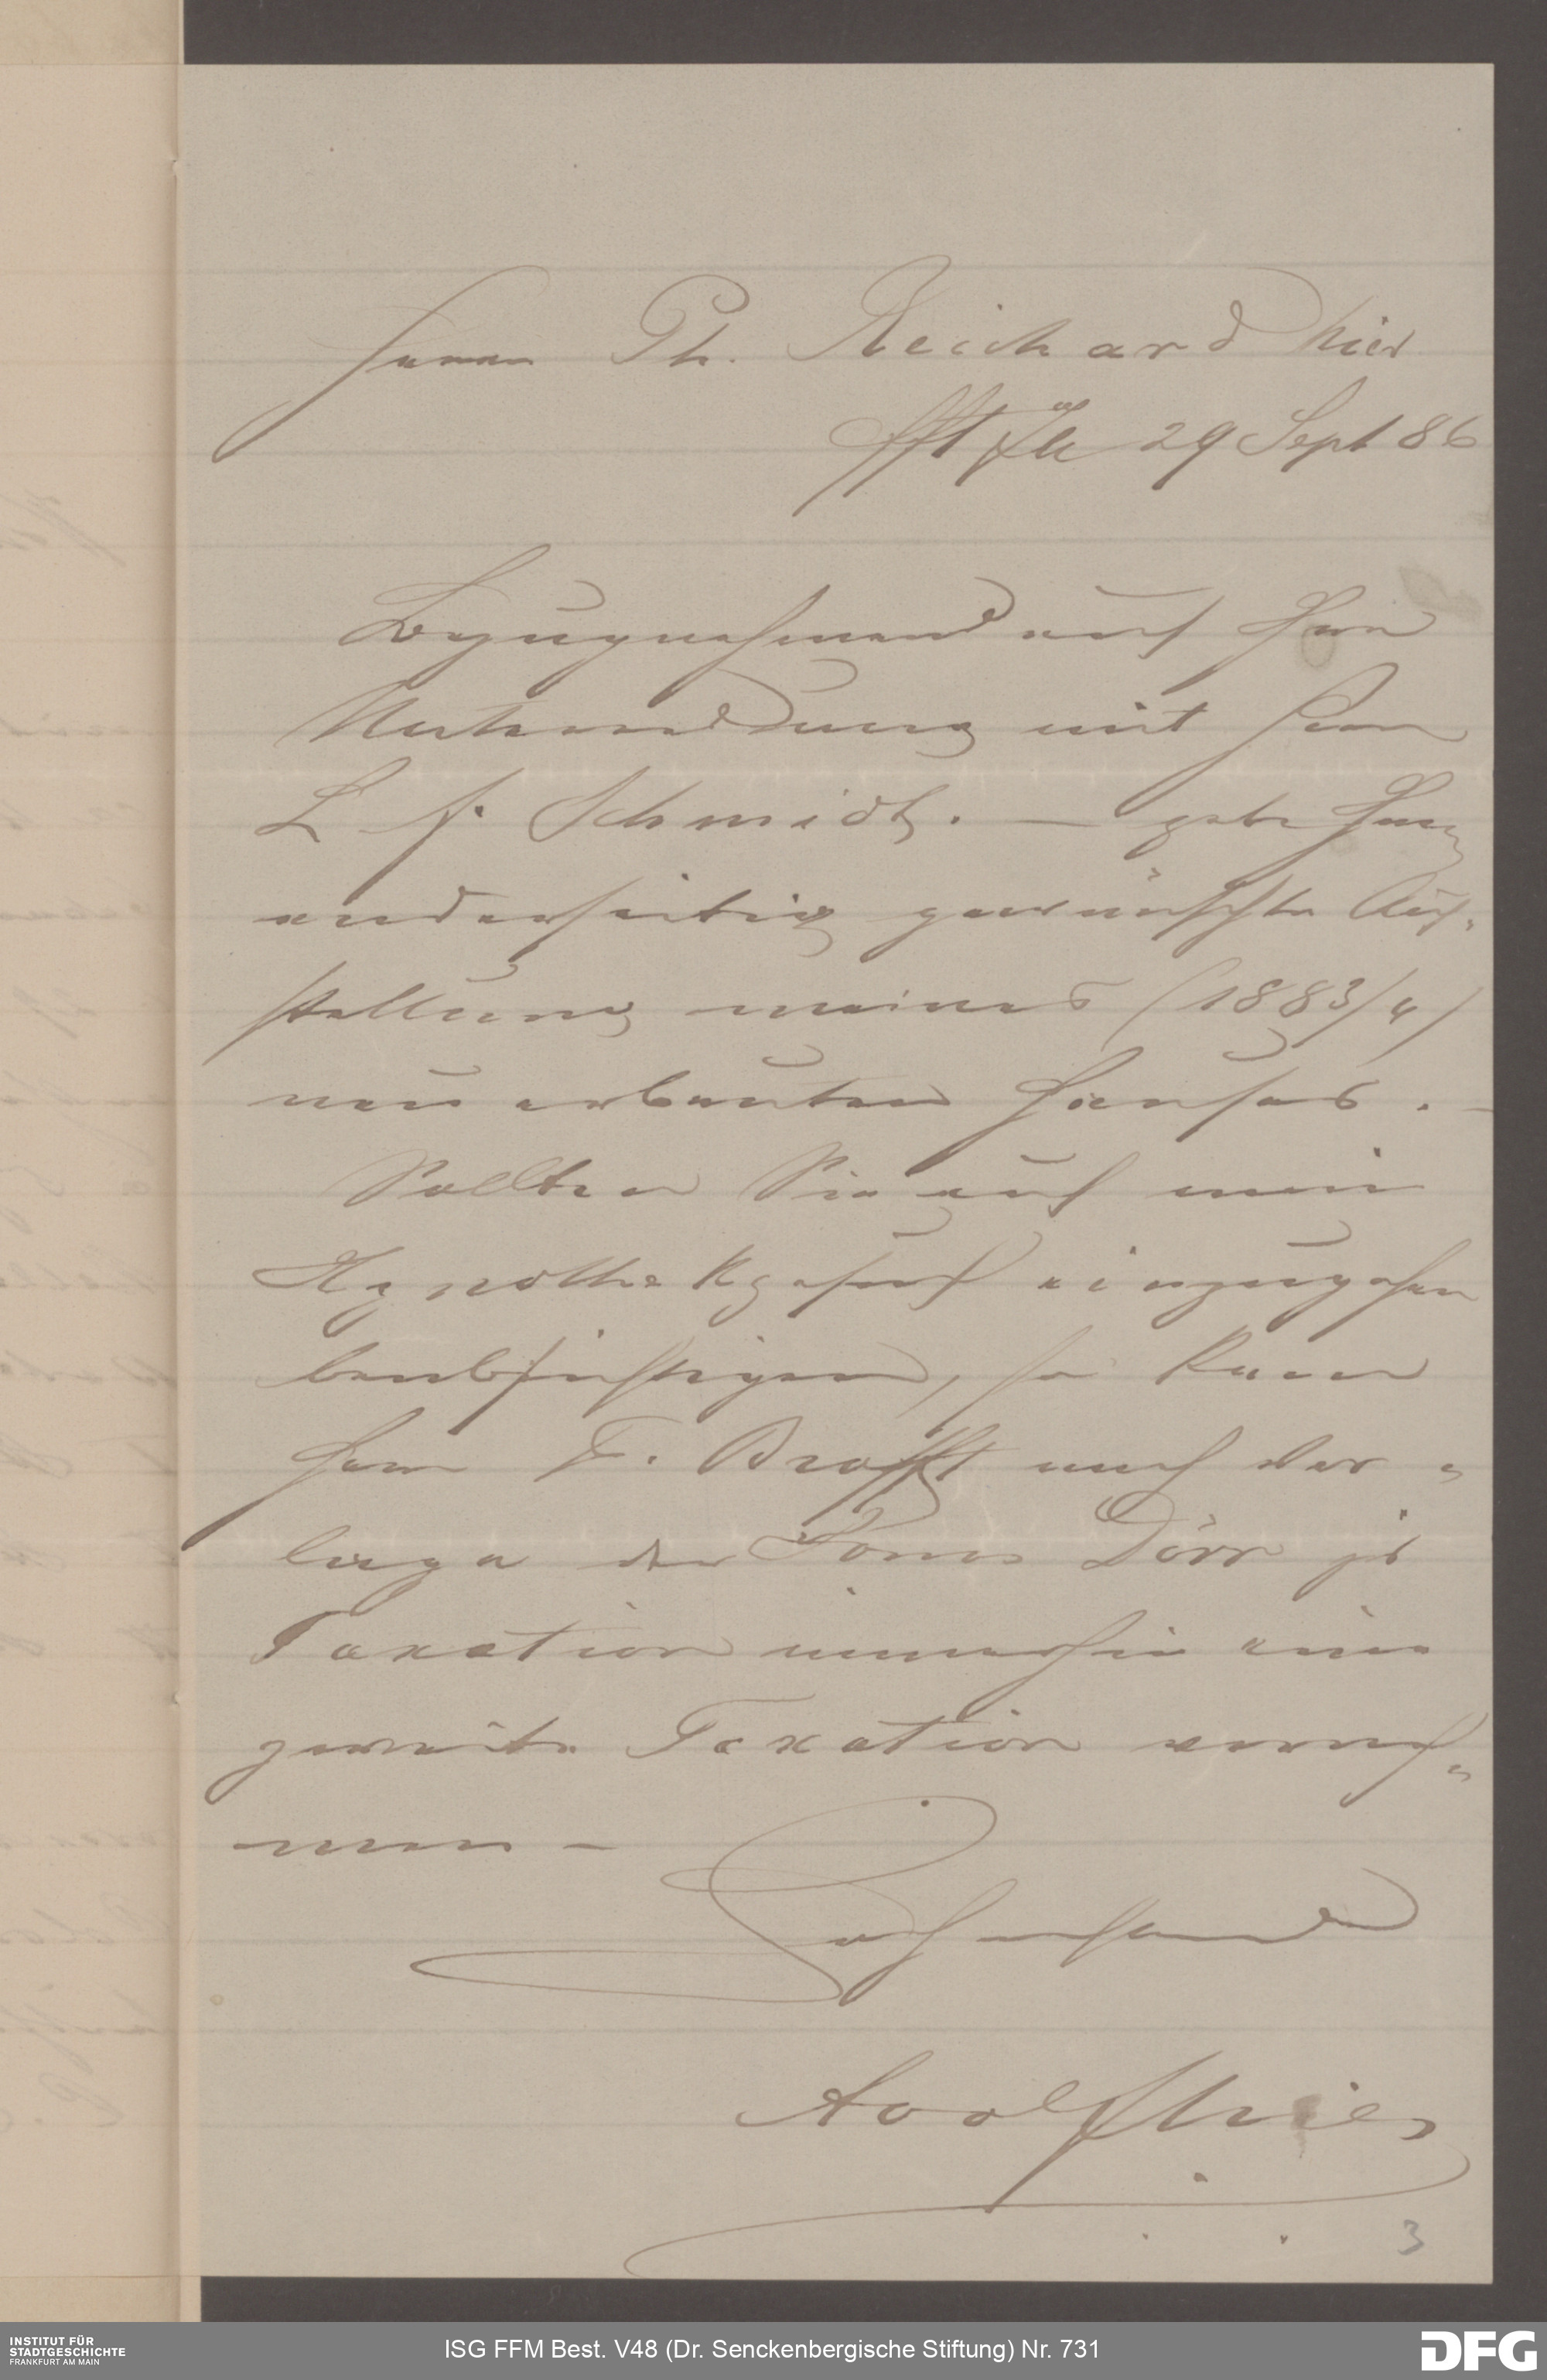 Herrn Ph. Reichard hier
Fft 29 Sept 86
Bezugnehmend auf Ihre
Unterredung mit Herrn
L F. Schmidt. — gebe Ihnen
anderseitig gewünschte Auf-
stellung meines (1883/4)
neu erbauten Hauses. —
Sollten Sie auf mein
Hypothekgesuch einzugehen
beabsichtigen, so kann
Herr F. Brofft nach Vor-
lage der Dörr
Taxation immerhin eine
zweite Taxation vorneh-
men –
Hochachtend
Adolf
3
INSTITUT FÜR
STADTGESCHICHTE
FRANKFURT AM MAIN
ISG FFM Best. V48 (Dr. Senckenbergische Stiftung) Nr. 731
DFG